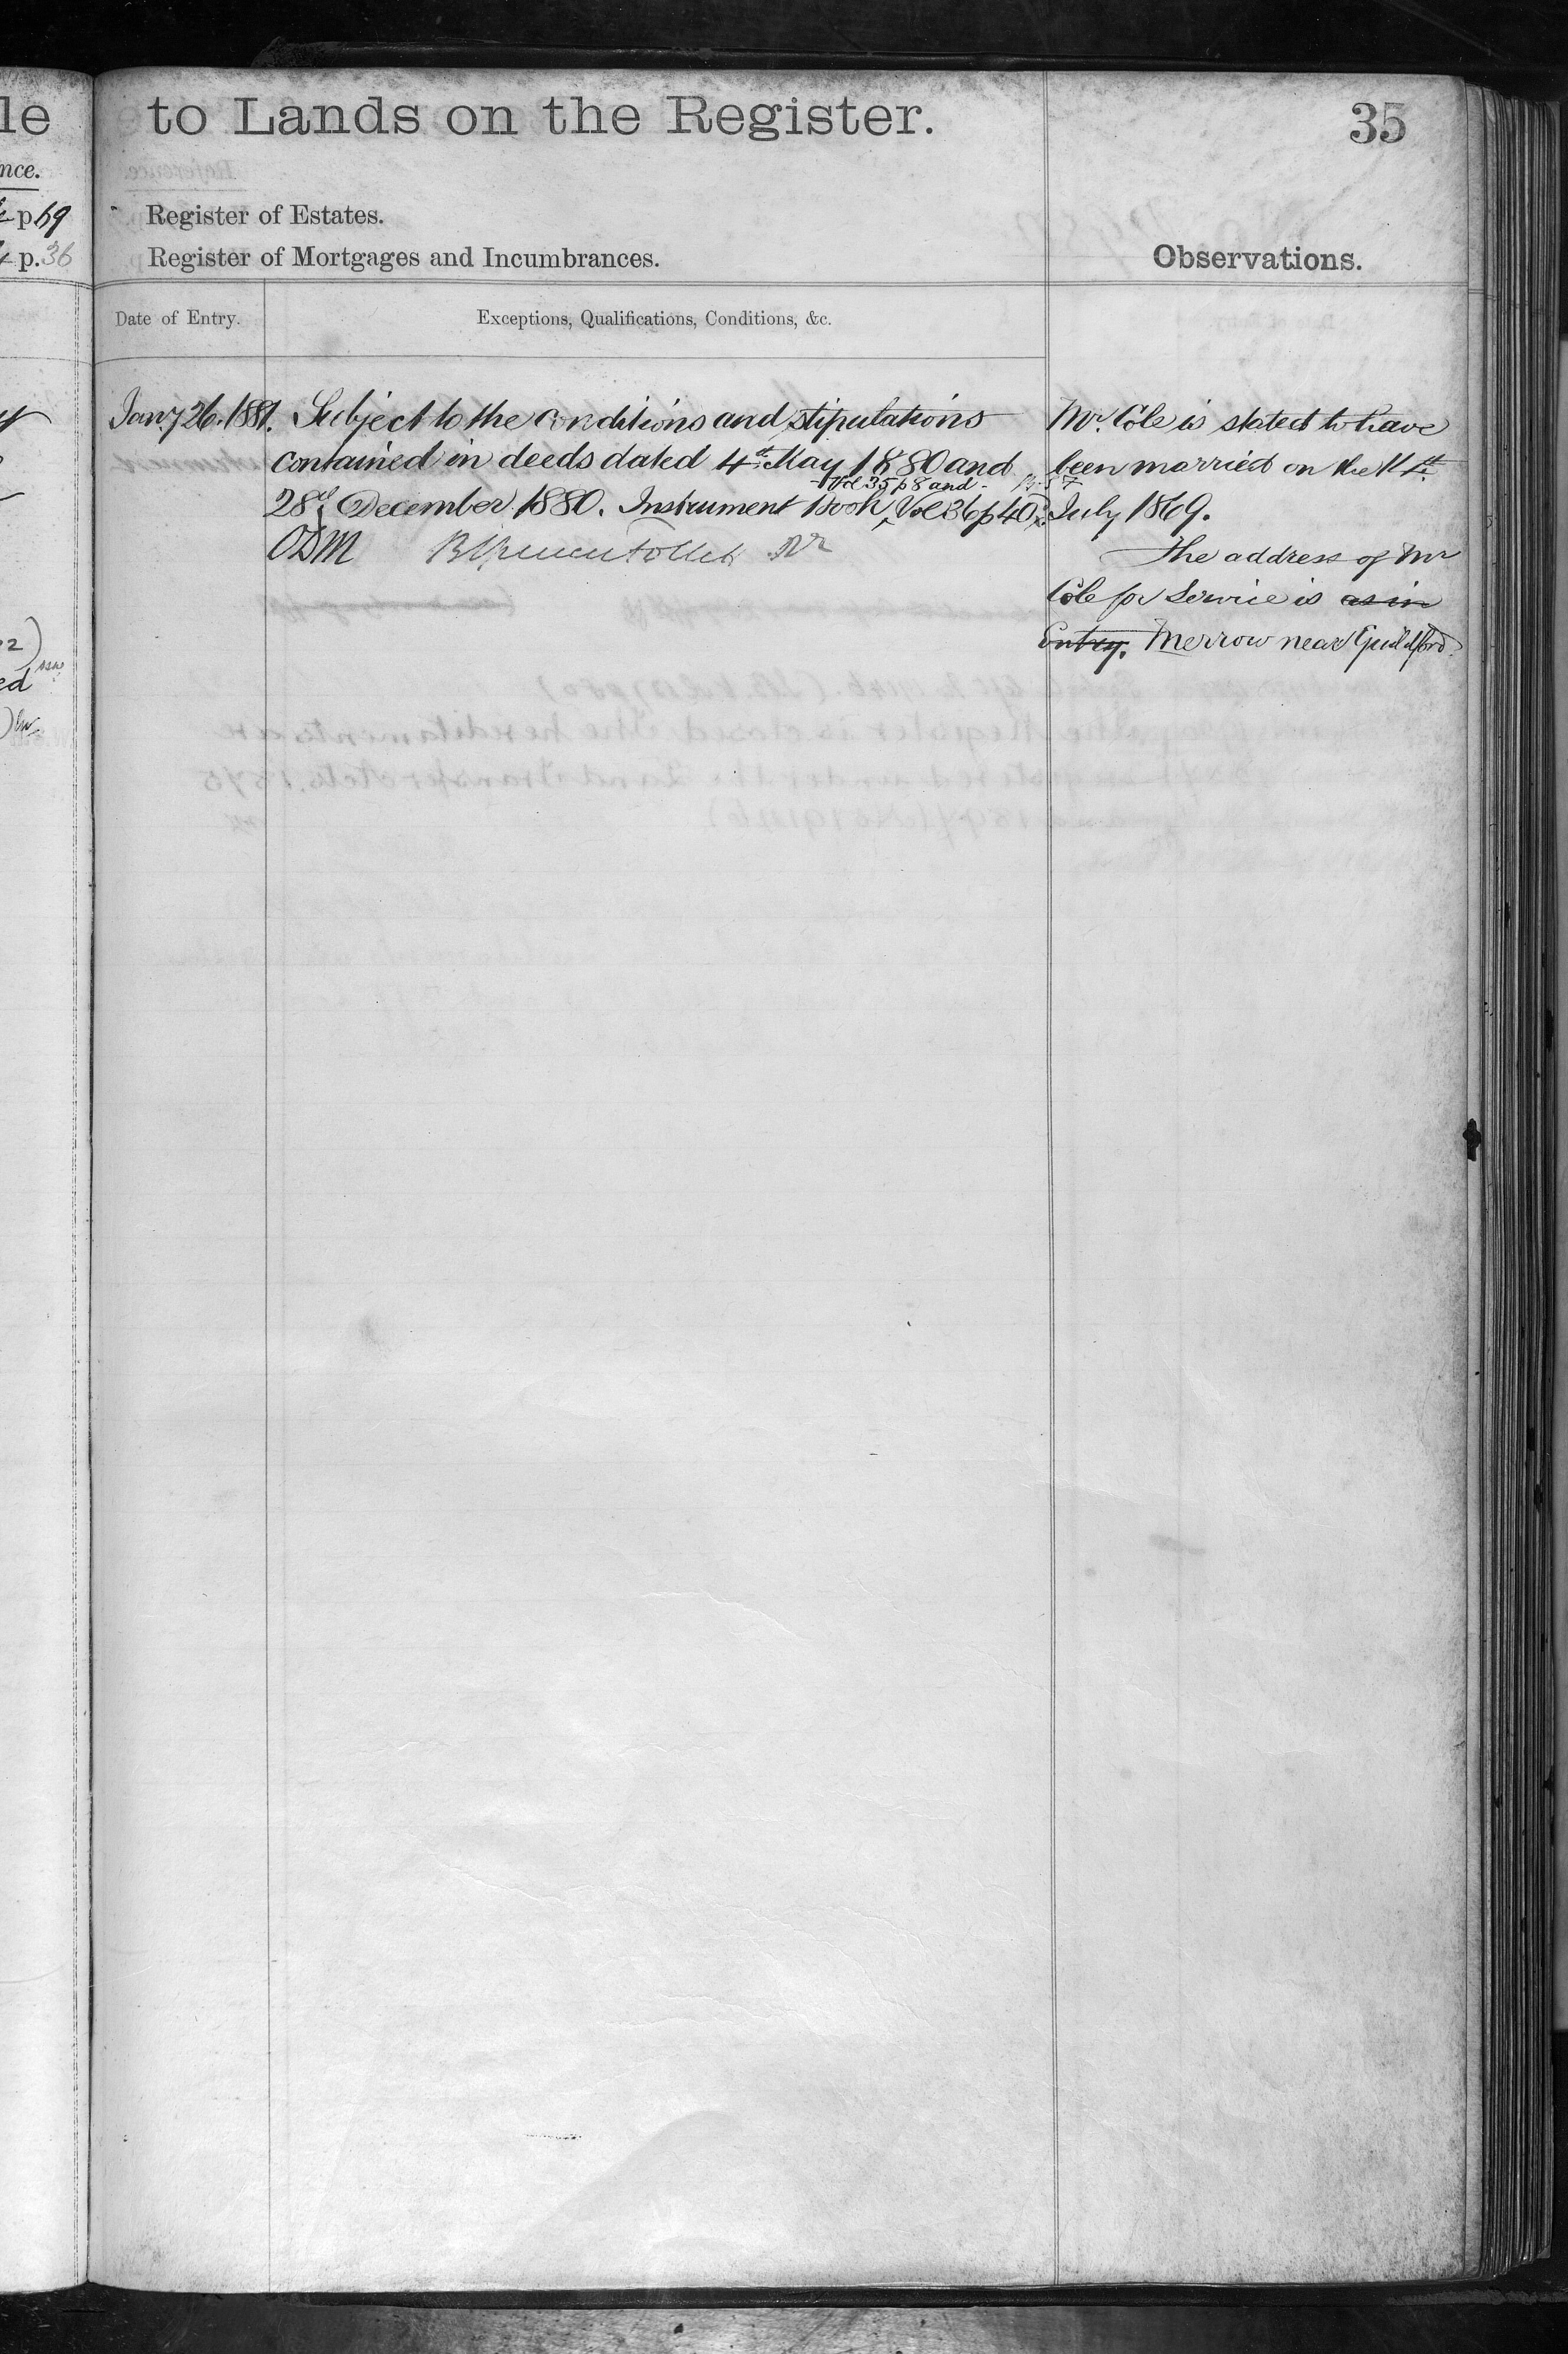 le to Lands on the Register. 35
nce.
p 69 Register of Estates.
p. 36 Register of Mortgages and Incumbrances.
Observations.
Date of Entry. Exceptions, Qualifications, Conditions, &c.
Jany 26. 1881. Subject to the conditions and stipulations
contained in deeds dated 4th May 1880 and
Vol 35 p 8 and
28th December 1880. Instrument Book, Vol 36 p 40
ODM
Mr. Cole is stated to have
been married on the
July 1869.
The address of Mr
Cole for Service is as in
Entry. Merrow near Guildford.
ed